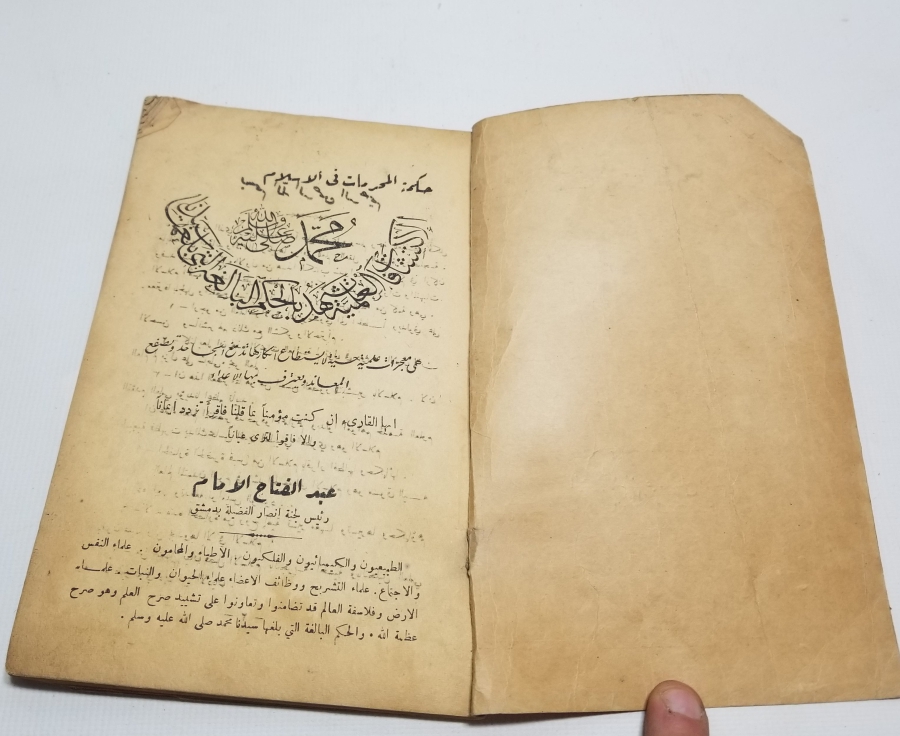 حكمة المحرمات في الاسلام
بسم الله الرحمن الرحيم
محمد صلى الله عليه وسلم
المكتشفات العلمية تشهد بالحكم البالغة التي بلغها سيدنا
على معجزات علمية حسية لا يستطاع انكارها تدمغ الجاحد وتصفع
المعاند ويعترف بها الاعداء
ايها القارىء ان كنت مؤمناً بما قلنا فاقرأ تزدد ايماناً
والا فاقرأ لترى عياناً
عبد الفتاح الامام
رئيس لجنة انصار الفضيلة بدمشق
الطبيعيون والكيميائيون والفلكيون . الأطباء والمحامون . علماء النفس
والاجتماع . علماء التشريح ووظائف الأعضاء علماء الحيوان والنبات . علمـــاء
الارض وفلاسفة العالم قد تضامنوا وتعاونوا على تشييد صرح العلم وهو صرح
عظمة الله . والحكم البالغة التي بلغها سيدنا محمد صلى الله عليه وسلم .